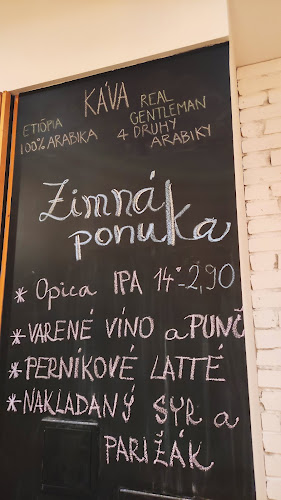 KÁVA
ETIÓPIA
100% ARABIKA
REAL
GENTLEMAN
4 DRUHY
ARABIKY
Zimná
ponuka
* Opica IPA 14° - 2,90
* VARENÉ VÍNO a PUNČ
* PERNÍKOVÉ LATTÉ
* NAKLADANÝ SYR a
PARIŽÁK